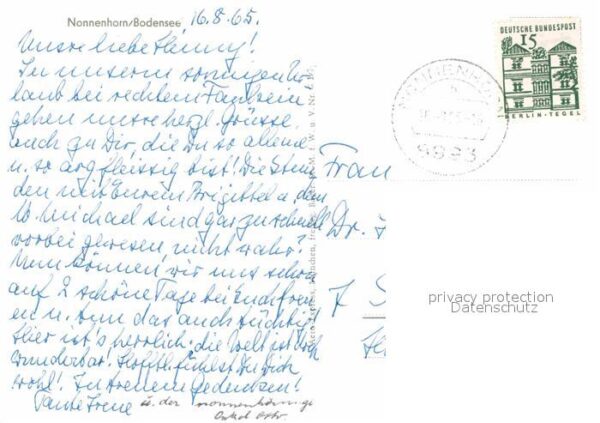 Nonnenhorn/Bodensee 16.8.65.
Unsre liebe
In unserm sonnigen Ur-
laub bei rechtem Faulsein
gehen unsre herzl. Grüsse
auch zu Dir, die Du so alleine
u. so arg fleissig bist! Die Stun-
den mit Eurem Brigittel u. dem
Michael sind gar zu schnell
vorbei gewesen, nicht wahr?
Nun können wir uns schon
auf 2 schöne Tage bei Euch freu-
en u. tun das auch tüchtig!
Hier ist's herrlich: die Welt ist doch
wunderbar! Hofftl. fühlst Du Dich
wohl! In treuem Gedenken!
Tante Irene u. der
Onkel
Frau
Dr.
7
DEUTSCHE BUNDESPOST
15
BERLIN-TEGEL
NONNENHORN
8993
privacy protection
Datenschutz